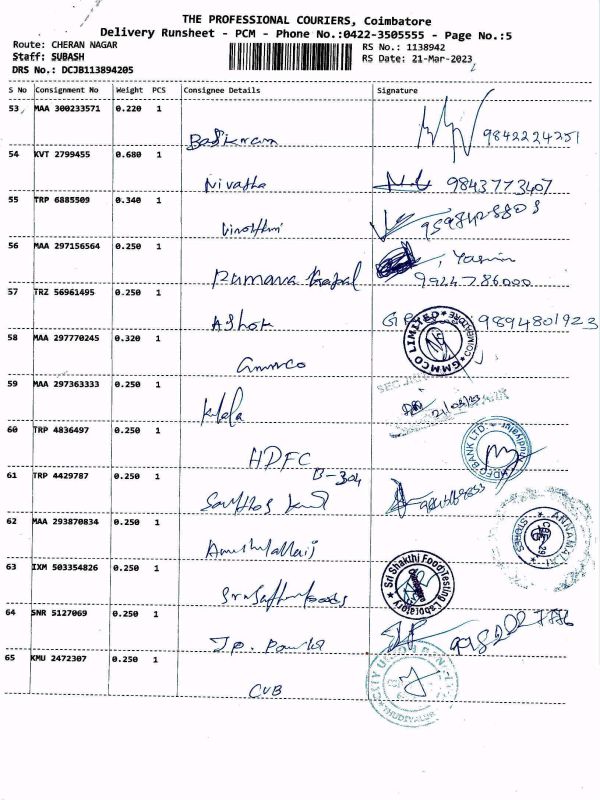 THE PROFESSIONAL COURIERS, Coimbatore
Delivery Runsheet - PCM - Phone No.:0422-3505555 - Page No.:5
Route: CHERAN NAGAR
RS No.: 1138942
Staff: SUBASH
RS Date: 21-Mar-2023
DRS No.: DCJB113894205
S No Consignment No Weight PCS Consignee Details Signature
53 MAA 300233571 0.220 1
9842224251
54 KVT 2799455 0.680 1
Nivatha 9843773407
55 TRP 6885509 0.340 1
56 MAA 297156564 0.250 1
, Yasmin
9944786000
57 TRZ 56961495 0.250 1
Ashok 9894801923
58 MAA 297770245 0.320 1
GMMCO LIMITED COIMBATORE
Gmmco
59 MAA 297363333 0.250 1
60 TRP 4836497 0.250 1
HDFC
61 TRP 4429787 0.250 1
B-304
62 MAA 293870834 0.250 1
ANNAMALAI STORES
63 IXM 503354826 0.250 1
Sri Shakthi Food Testing Laboratory
64 SNR 5127069 0.250 1
65 KMU 2472307 0.250 1
CITY UNION BANK LTD
THUDIYALUR
CUB